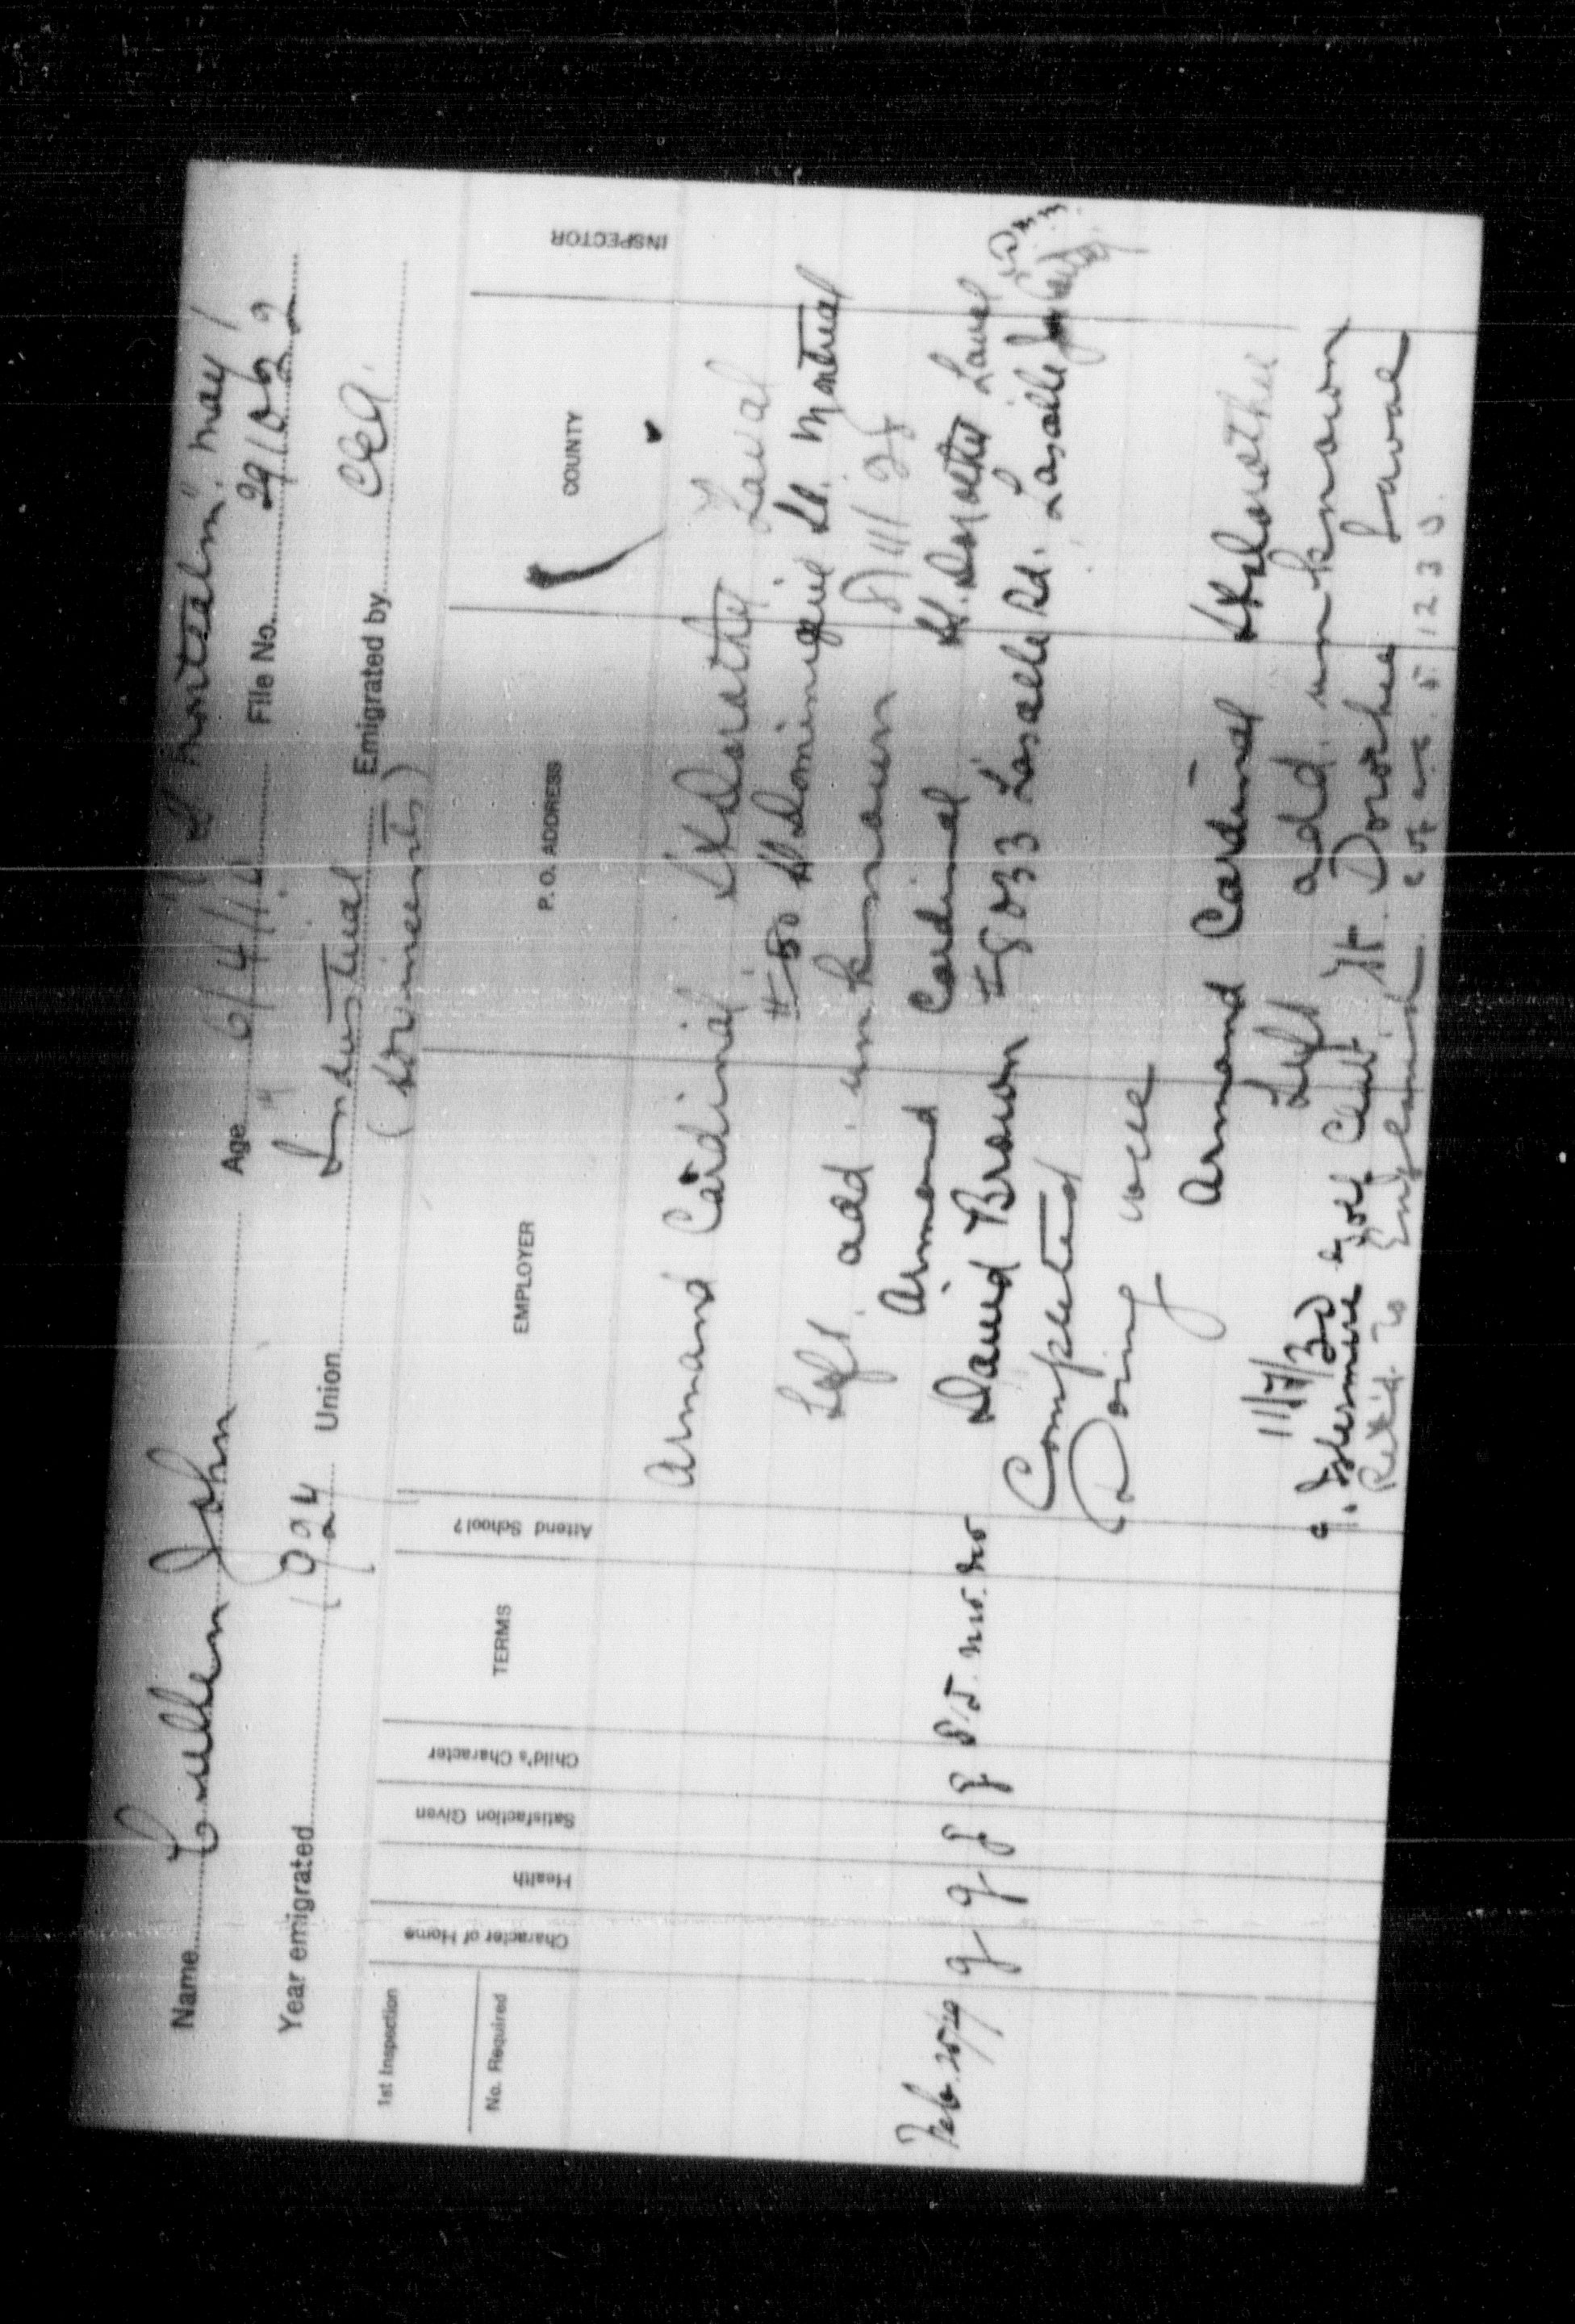 Name Cullen John Age 6/4/1 S.S. Montcalm. May 1
Year emigrated 1924 Union Industrial File No. 291062
(Sorrincourts) Emigrated by CEA.
1st Inspection
No. Required
Character of Home
Health
Satisfaction Given
Child's Character
TERMS
Attend School?
EMPLOYER
P. O. ADDRESS
COUNTY
INSPECTOR
Armand Cardinal St Dorothee Laval
#50 St Dominique St. Montreal
Left. add. unknown
Armand Cardinal St. Dorothee Laval
Feb. g g g g No. No David Brown #8033 Lasalle Rd. Lasalle
Completed
Doing well
Armand Cardinal St Dorothee
11/7/30 Left add. unknown
Islesmere Golf Club. St. Dorothee Laval
Ret'd. to England 5.12.30.